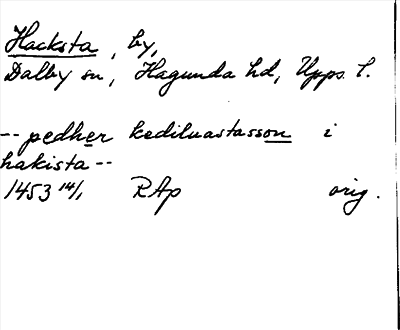 Hacksta, by,
Dalby sn, Hagunda hd, Upps. l.
-- pedher kediluastasson i
hakista --
1453 14/1 RAp orig.